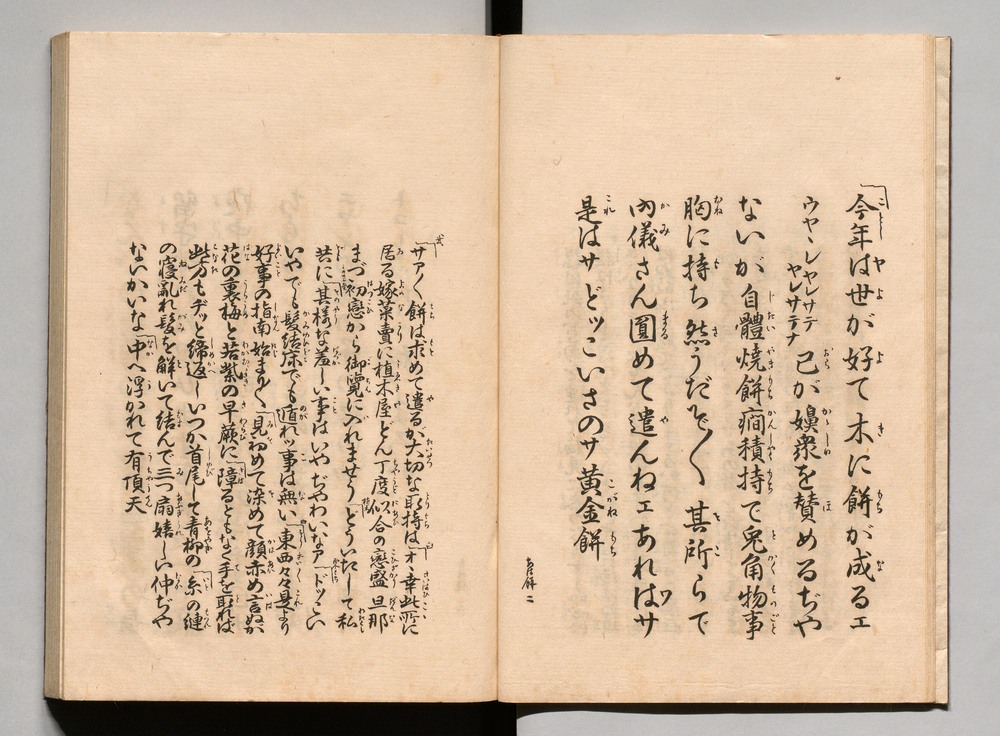 「今年は世が好て木に餅が成るエ
ウヤヽレヤレサテ
ヤレサテナ
己が嬶衆を賛めるぢや
ないが自體焼餅癇積持で兎角物事
胸に持ち然うだで〱其所らで
内儀さん圓めて遣んねエあれはサ
是はサどッこいさのサ黄金餅
「サア〱餅は求めて遣るが大切な取持は「オヽ幸此所に
居る嫁菜賣に植木屋どん丁度似合の戀盛旦那
まづ初戀から御覽に入れませう「どうぞして私
共に「其様な羞しい事はいや「ぢやわいなア「ドッこい
いやでも髮結床でも遁れッ事は無い「東西々々是より
好事の指南始まり〱「見初めて染めて顔赤め言ぬが
花の裏梅と若紫の早蕨に「障るともなく手を取れば
此方もヂッと締返しいつか首尾して青柳の「糸の縺
の寝亂れ髮を解いて結んで三つ扇嬉しい仲ぢや
ないかいな「中へ浮かれて有頂天